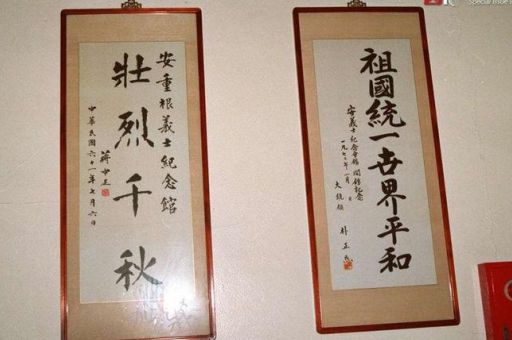 安重根義士紀念館
壯烈千秋
蔣中正
中華民國六十一年七月六日
祖國統一世界平和
安義士紀念會館 開館記念
大統領 朴正熙
Special Issue